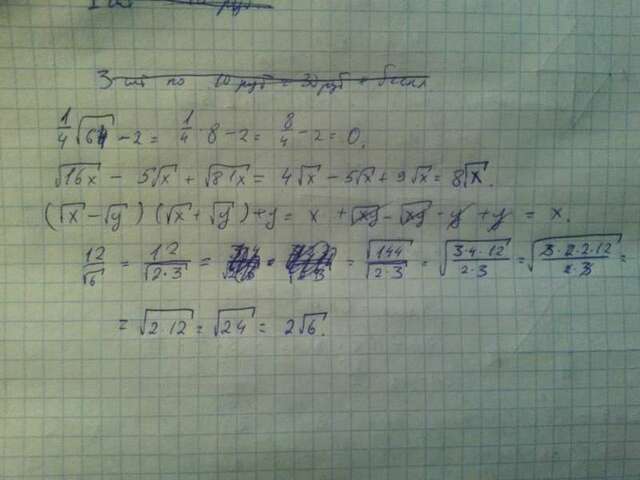 3 шт по 10 руб = 30 руб
1/4 √64 - 2 = 1/4 · 8 - 2 = 8/4 - 2 = 0.
√16x - 5√x + √81x = 4√x - 5√x + 9√x = 8√x.
(√x - √y) (√x + √y) + y = x + √xy - √xy - y + y = x.
12/√6 = 12/√2·3 = = √144/2·3 = √3·4·12/2·3 = √3·2·2·12/2·3 =
= √2·12 = √24 = 2√6.